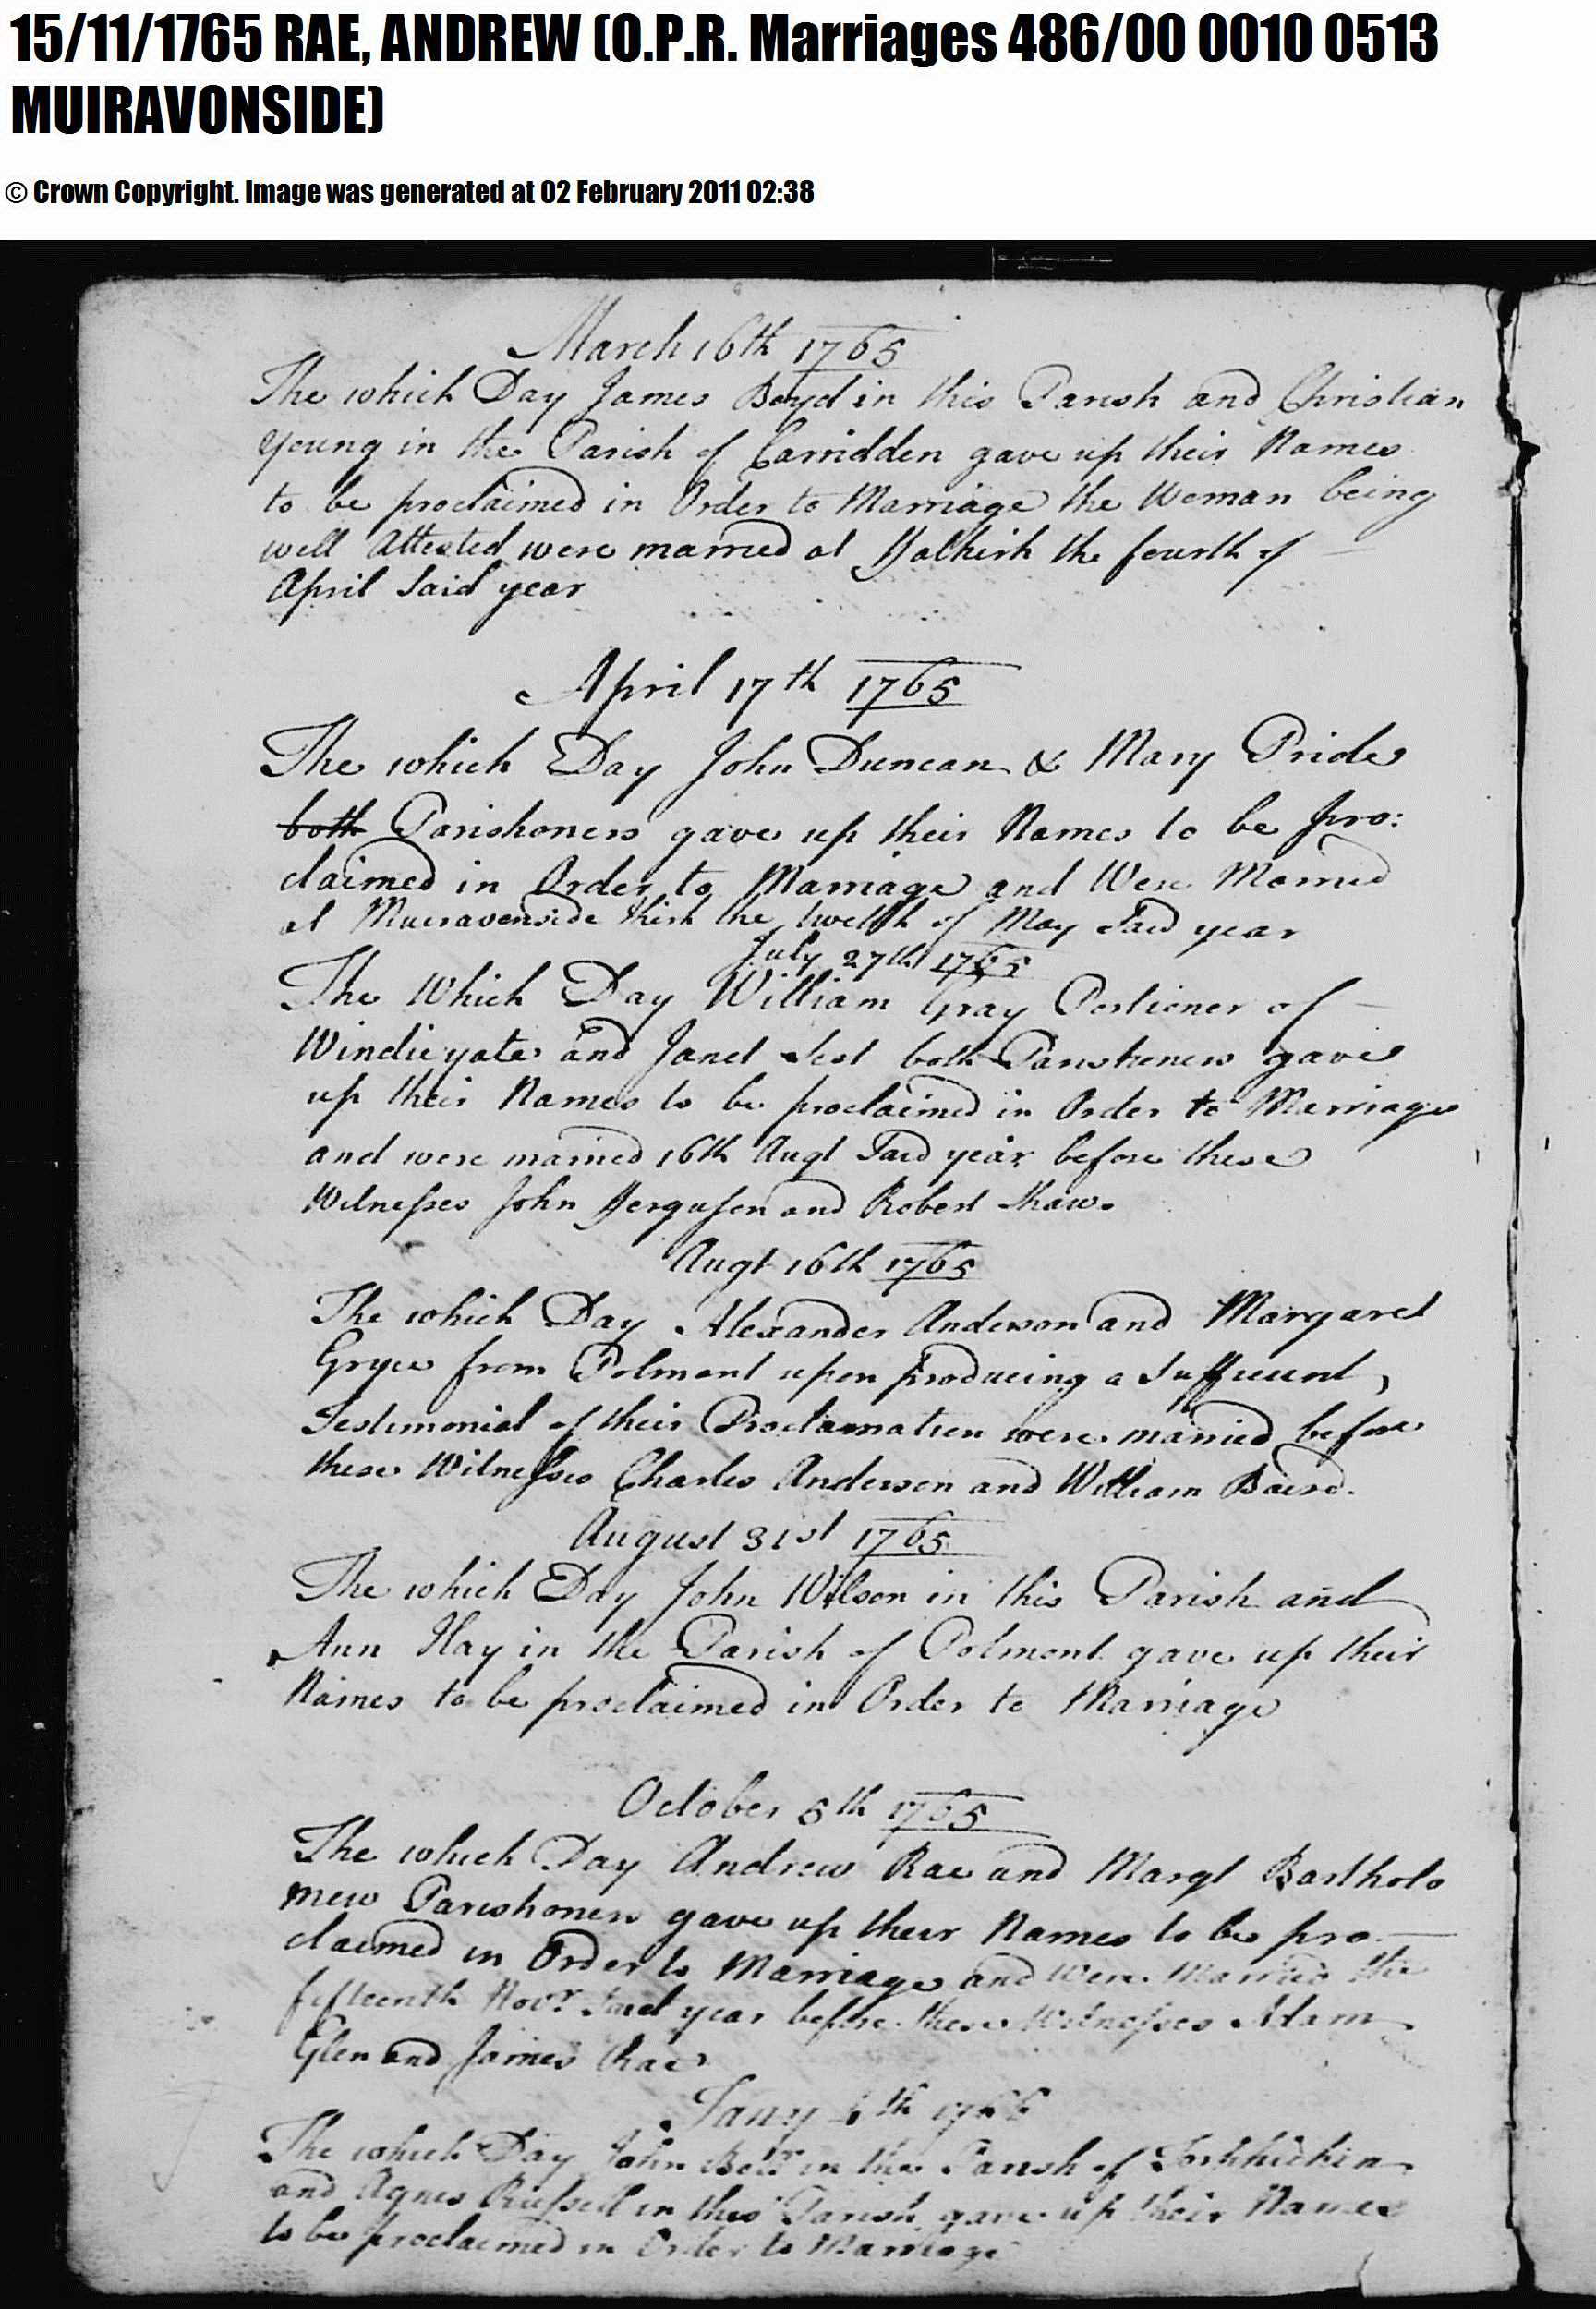 15/11/1765 RAE, ANDREW (O.P.R. Marriages 486/00 0010 0513
MUIRAVONSIDE)
© Crown Copyright. Image was generated at 02 February 2011 02:38
March 16th 1765
The which Day James Boyd in this Parish and Christian
Young in the Parish of Carridden gave up their Names
to be proclaimed in Order to Marriage the Woman being
well Attested were married at ffalkirk the fourth of
April Said year
April 17th 1765
The which Day John Duncan & Mary Pride
both Parishoners gave up their Names to be pro:
claimed in Order to Marriage and Were Married
at Muiravonside Kirk the twelfth of May Said year
July 27th 1765
The Which Day William Gray Portioner of
Windieyate and Janet both Parishoners gave
up their Names to be proclaimed in Order to Marriage
and were married 16th Augt Said year before these
Witnesses John fferguson and Robert Shaw.
Augt 16th 1765
The which Day Alexander Anderson and Margaret
from Polmont upon producing a Sufficient
Testimonial of their Proclamation were married before
these Witnesses Charles Anderson and William Baird.
August 31st 1765
The which Day John Wilson in this Parish and
Ann Hay in the Parish of Polmont gave up their
Names to be proclaimed in Order to Marriage
October 5th 1765
The which Day Andrew Rae and Margt Bartholo
mew Parishoners gave up their Names to be pro
claimed in Order to Marriage and were Married the
fifteenth Novr. Said year before these Witnesses Adam
Glen and James Rae
Jany 1766
The which Day John in the Parish of Torphichin
and Agnes Russell in this Parish gave up their Names
to be proclaimed in Order to Marriage